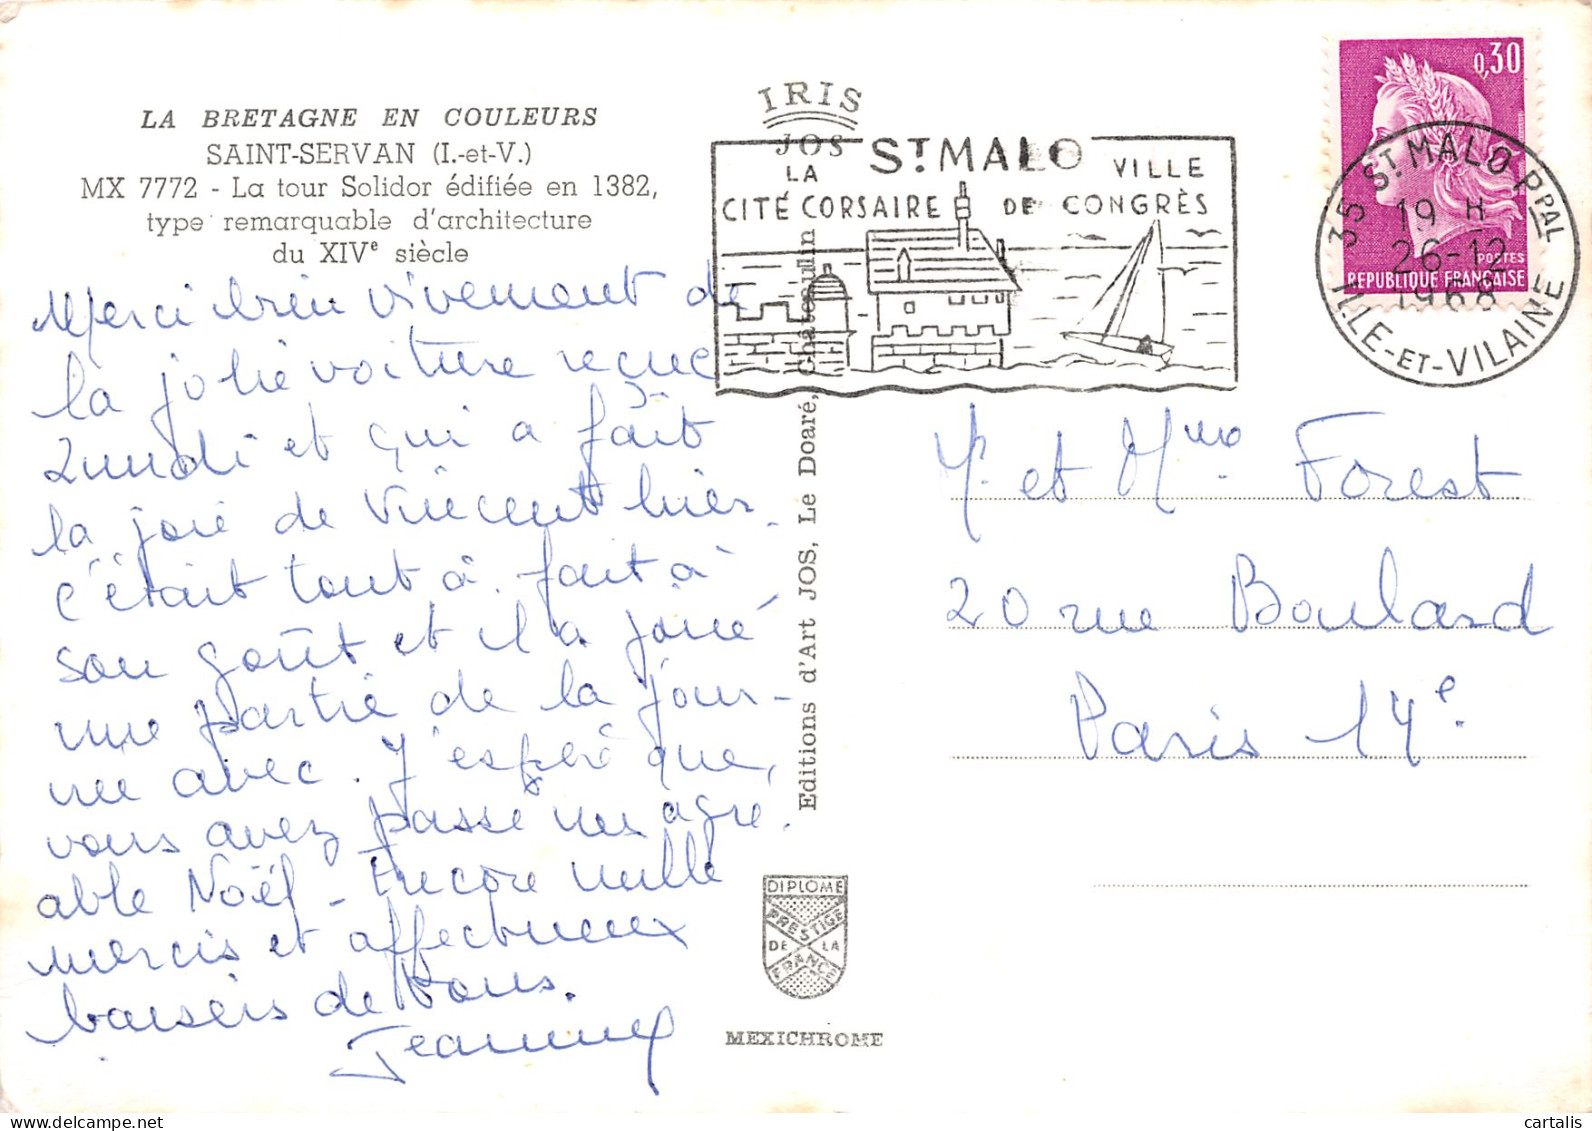 LA BRETAGNE EN COULEURS
SAINT-SERVAN (I.-et-V.)
MX 7772 - La tour Solidor édifiée en 1382,
type remarquable d'architecture
du XIVᵉ siècle
Merci bien vivement de
la jolie voiture reçue
Lundi et qui a fait
la joie de Vincent hier.
c'était tout à fait à
son goût et il a joué
une partie de la jour-
née avec. J'espère que,
vous avez passé un agré-
able Noël - Encore mille
mercis et affectueux
baisers de tous.
Jeannine
IRIS
JOS
Editions d'Art JOS, Le Doaré, Châteaulin
DIPLOME
PRESTIGE
DE LA
FRANCE
MEXICHROME
ST MALO
LA
CITÉ CORSAIRE
VILLE
DE CONGRÈS
0,30
POSTES
REPUBLIQUE FRANÇAISE
35 ST MALO PPAL
19 H
26-12
1968
ILLE-ET-VILAINE
M. et Mme Forest
20 rue Boulard
Paris 14e.
cartalis